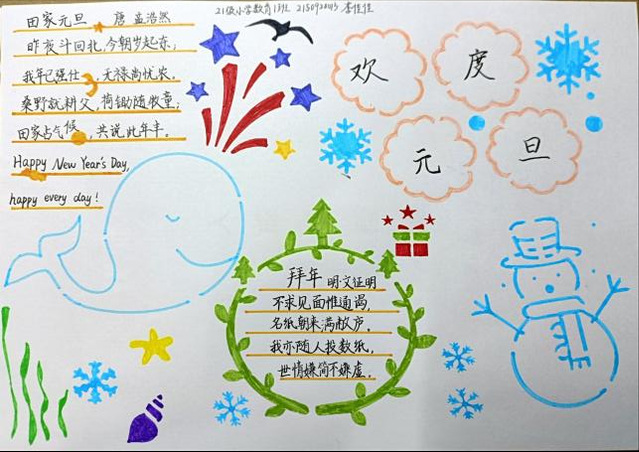 21级小学教育
田家元旦 唐 孟浩然
昨夜斗回北,今朝岁起东;
我年已强仕,无禄尚忧农。
桑野就耕父,荷锄随牧童;
田家占气候,共说此年丰。
Happy New Year's Day,
happy every day!
欢度
元旦
拜年 明·文证明
不求见面惟通谒,
名纸朝来满敝庐。
我亦随人投数纸,
世情嫌简不嫌虚。